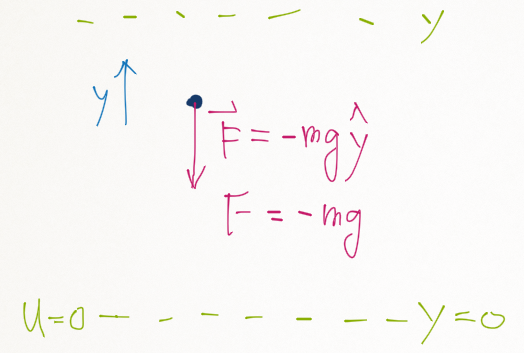 y
y
F⃗ = -mgŷ
F = -mg
U=0 y=0